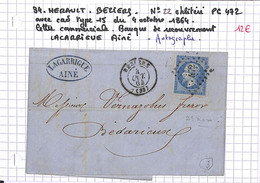 34. HERAULT. BEZIERS. N° 22 oblitéré PC 472
avec cad type 15 du 4 octobre 1864.
Lettre commerciale. Banque de recouvrement 12€
LAGARRIGUE Ainé - Autographe.
LAGARRIGUE
AINÉ
BEZIERS
4
OCT.
64
(33)
Messieurs Vernazobres frères
Bédarieux